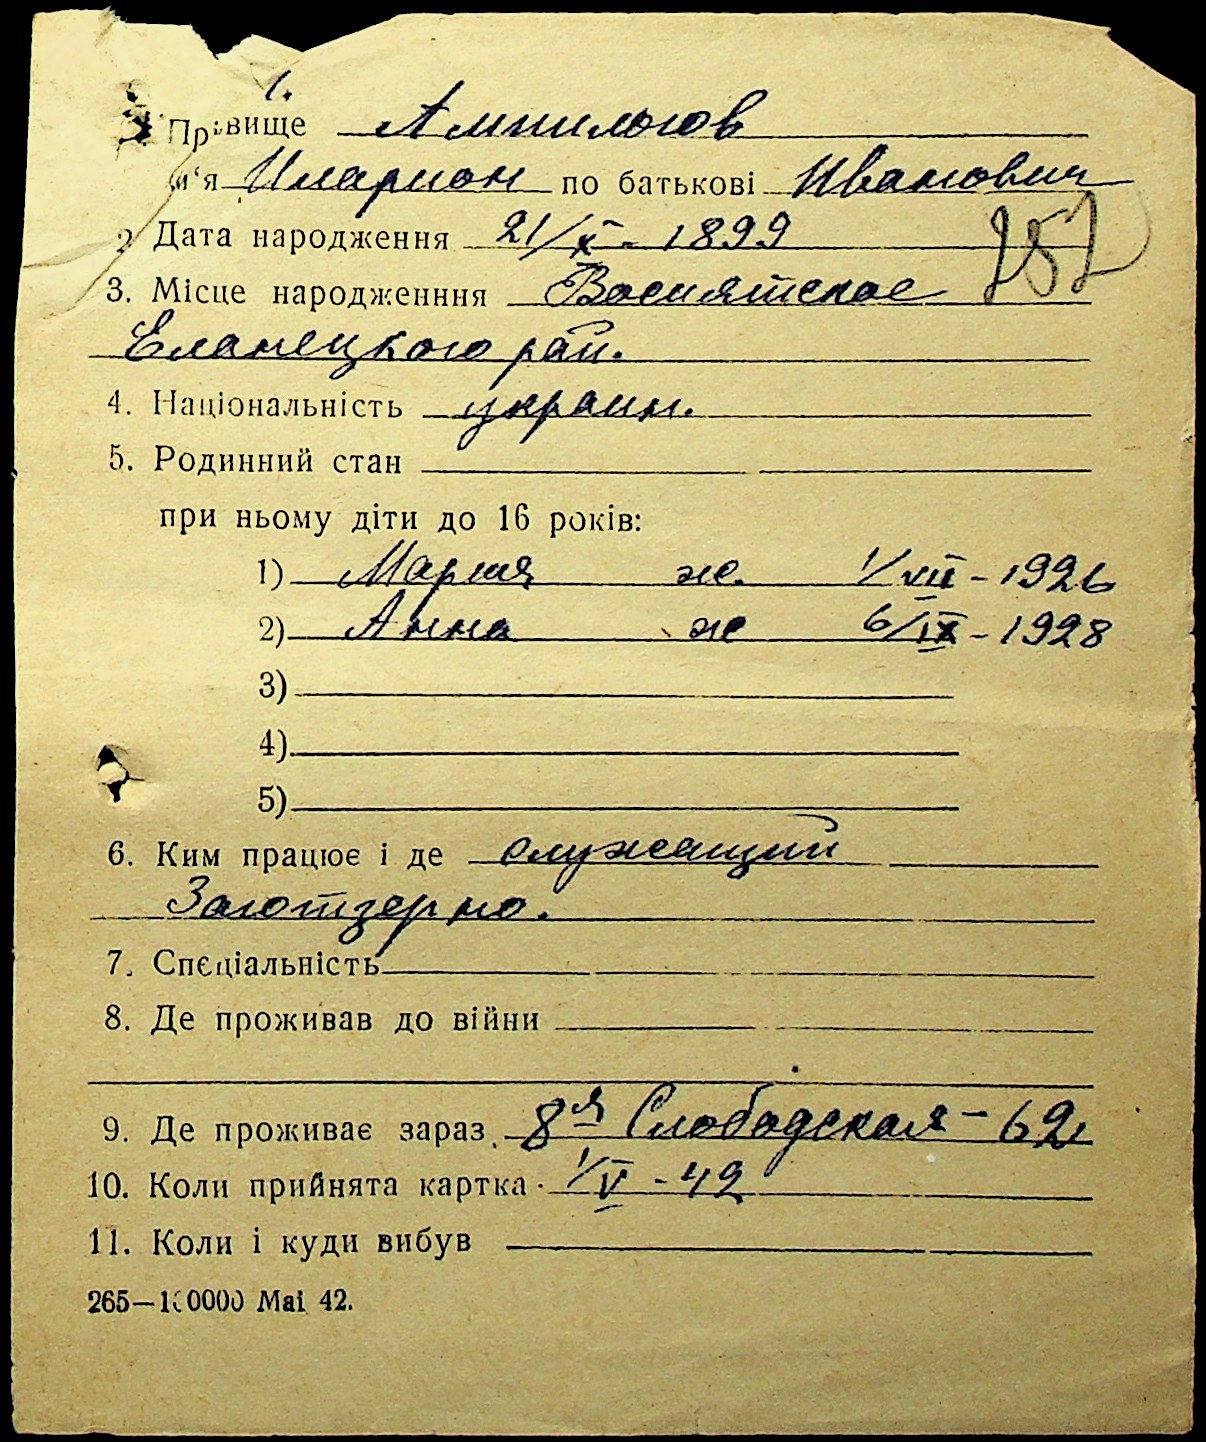 1.
Прізвище Ампилогов
м'я Иларион по батькові Иванович
2 Дата народження 21/X - 1899
3. Місце народженння Восиятское
Еланецкого рай.
4. Національність украин.
5. Родинний стан
при ньому діти до 16 років:
1) Мария ж. 1/VII - 1926
2) Анна ж 6/IX - 1928
3)
4)
5)
6. Ким працює і де служащий
Заготзерно.
7. Спеціальність
8. Де проживав до війни
9. Де проживає зараз. 8я Слободская - 62
10. Коли прийнята картка 1/V - 42
11. Коли і куди вибув
265—100000 Mai 42.